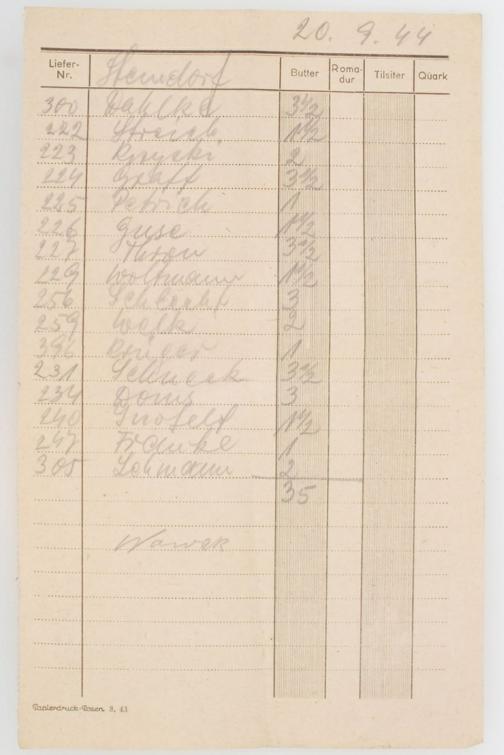 20. 9. 44
Liefer-Nr. Steindorf Butter Romadur Tilsiter Quark
300 Dahlke 3 1/2
222 Streich 1 1/2
223 2
224 Graff 3 1/2
225 Petrich 1
226 Guse 1 1/2
227 Thron 3 1/2
229 Woltmann 1 1/2
256 Schlecht 3
259 Wolk 2
396 Krüger 1
231 Schneck 3 1/2
234 Doms 3
240 1 1/2
247 Franke 1
305 Lehmann 2
35
Nowak
Papierdruck-Posen 8. 43